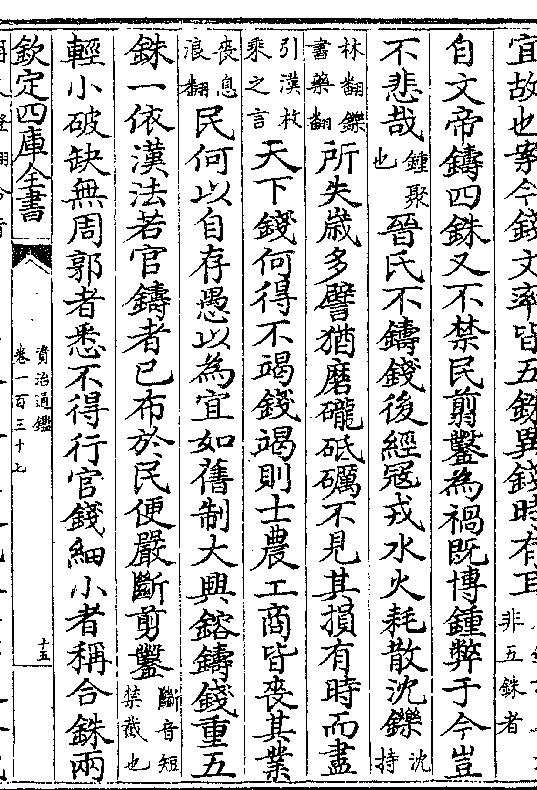 宜故也案今錢文率皆五銖異錢時有耳非五銖者
自文帝鑄四銖又不禁民翦鑿為禍既博鍾弊于今豈
不悲哉鍾聚也晉氏不鑄錢後經冦戎水火耗散沈鑠沈持
林翻鑠書藥翻所失歲多譬猶磨礲砥礪不見其損有時而盡
引漢枚乘之言天下錢何得不竭錢竭則士農工商皆喪其業
喪息浪翻民何以自存愚以為宜如舊制大興鎔鑄錢重五
銖一依漢法若官鑄者已布於民便嚴斷剪鑿斷音短禁截也
輕小破缺無周郭者悉不得行官錢細小者稱合銖兩
欽定四庫全書
資治通鑑
卷一百三十七
十五